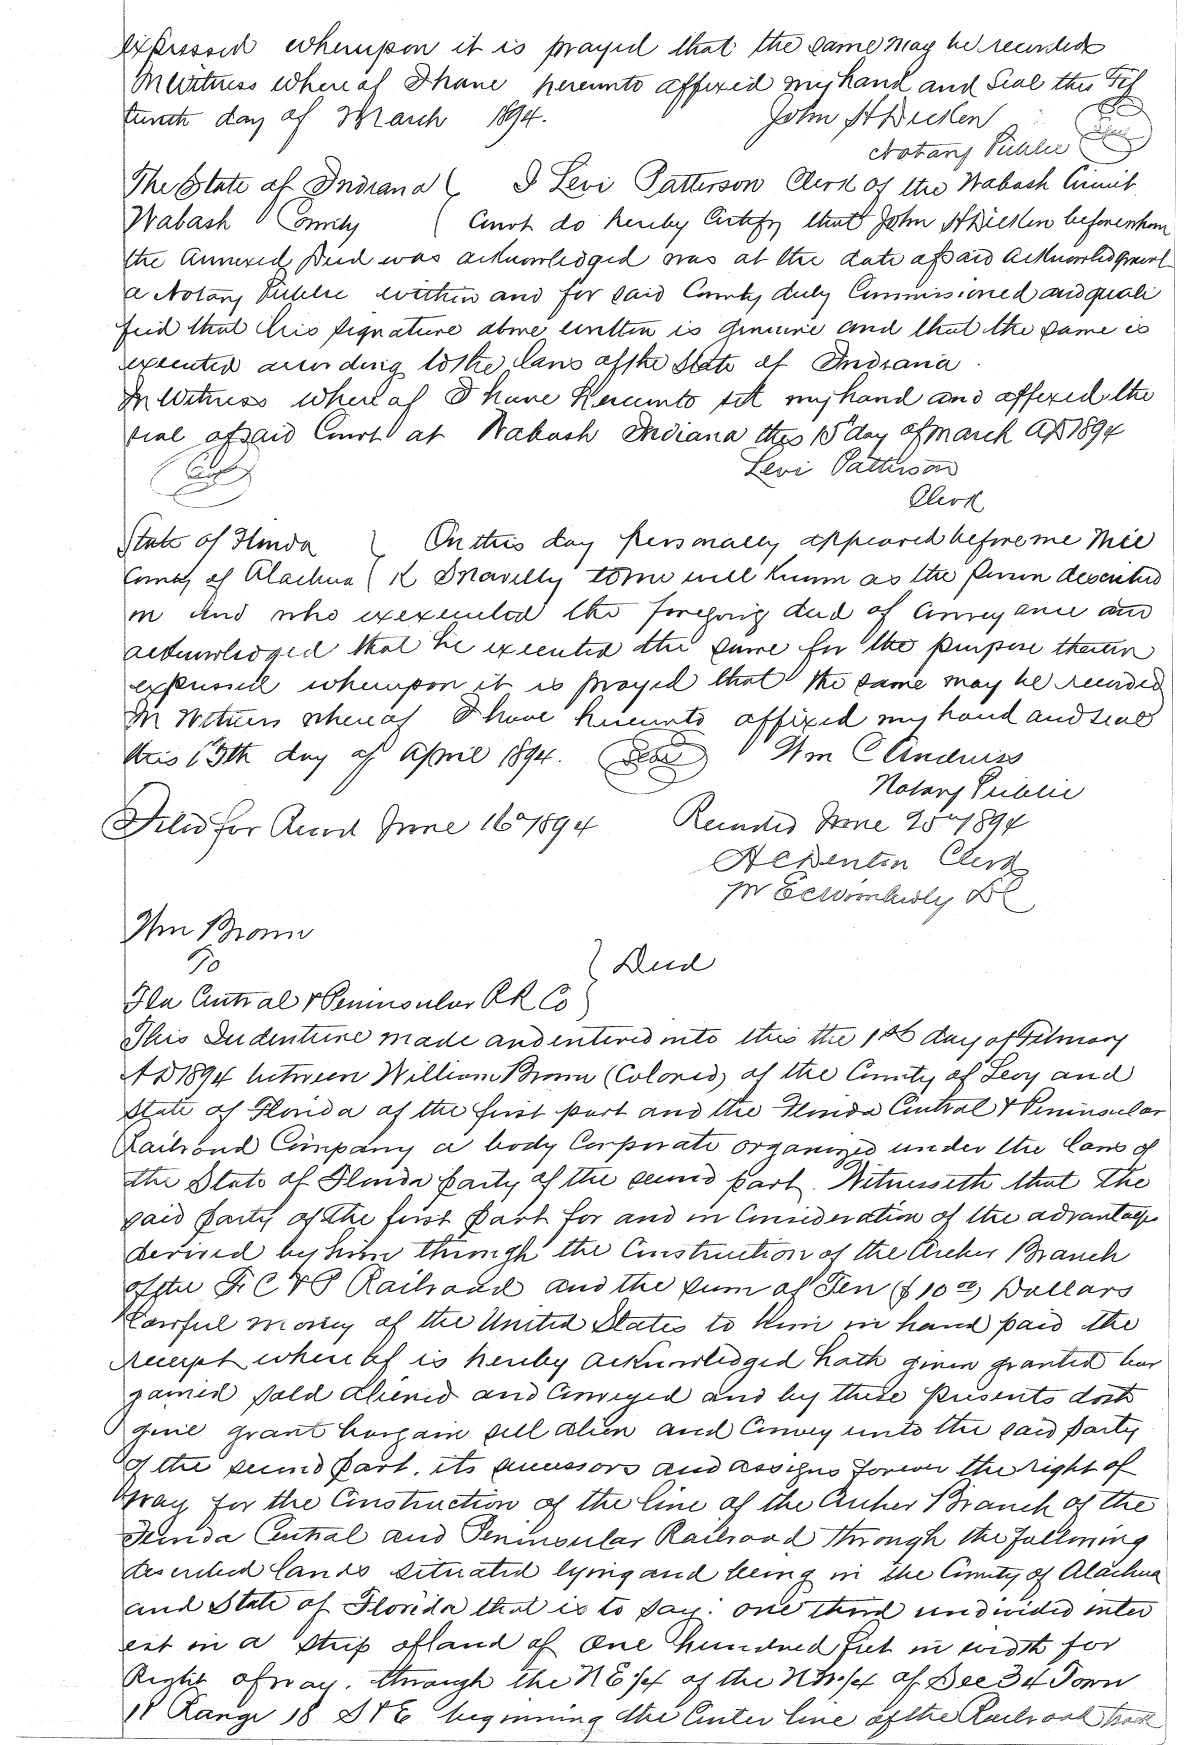 expressed whereupon it is prayed that the same may be recorded
In Witness whereof I have hereunto affixed my hand and Seal this Fif
teenth day of March 1894. John H Dicken
Notary Public Seal
The State of Indiana I Levi Patterson Clerk of the Wabash Circuit
Wabash County Court do hereby Certify that John H Dicken before whom
the annexed Deed was acknowledged was at the date of said acknowledgment
a Notary Public within and for said County duly Commissioned and quali
fied that his signature above written is genuine and that the same is
executed according to the laws of the State of Indiana.
In Witness whereof I have hereunto set my hand and affixed the
seal of said Court at Wabash Indiana this 15th day of March AD 1894
Levi Patterson
Clerk
State of Florida On this day personally appeared before me
County of Alachua K Snavelly to me well known as the person described
in and who exexecuted the foregoing deed of conveyance and
acknowledged that he executed the same for the purpose therein
expressed whereupon it is prayed that the same may be recorded
In Witness whereof I have hereunto affixed my hand and seal
this 13th day of April 1894. Seal Wm C Andruss
Notary Public
Filed for Record June 16" 1894 Recorded June 25" 1894
H C Denton Clerk
pr E C Wimberly DC
Wm Brown
To } Deed
Fla Central & Peninsular RR Co
This Indenture made and entered into this the 1st day of February
AD 1894 between William Brown (Colored) of the County of Levy and
State of Florida of the first part and the Florida Central & Peninsular
Railroad Company a body Corporate organized under the laws of
the State of Florida party of the second part. Witnesseth that the
said party of the first part for and in Consideration of the advantages
derived by him through the Construction of the Archer Branch
of the F. C & P Railroad and the sum of Ten ($10 00) Dollars
lawful money of the United States to him in hand paid the
receipt whereof is hereby acknowledged hath given granted bar
gained sold aliened and Conveyed and by these presents doth
give grant bargain sell alien and Convey unto the said party
of the second part. its successors and assigns forever the right of
way for the Construction of the line of the Archer Branch of the
Florida Central and Peninsular Railroad through the following
described lands situated lying and being in the County of Alachua
and State of Florida that is to say: one third undivided inter
est in a strip of land of one hundred feet in width for
Right of way. through the NE 1/4 of the NW 1/4 of Sec 34 Town
11 Range 18 S & E beginning the Center line of the Railroad track